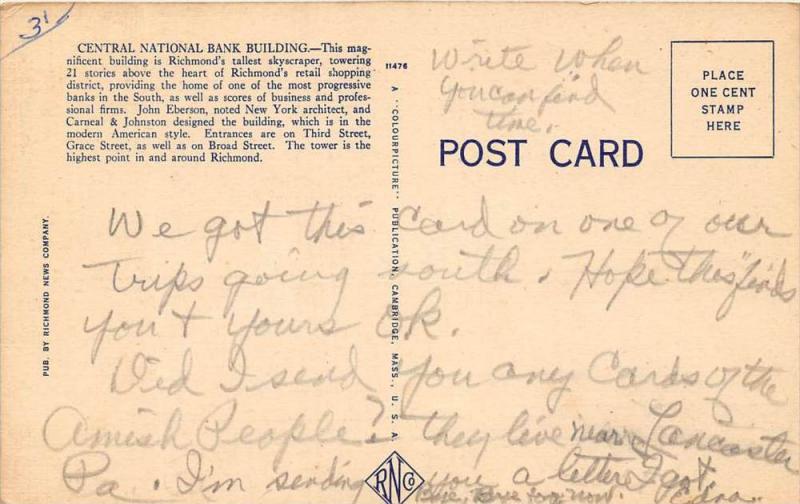 31
CENTRAL NATIONAL BANK BUILDING.—This mag-
nificent building is Richmond's tallest skyscraper, towering
21 stories above the heart of Richmond's retail shopping
district, providing the home of one of the most progressive
banks in the South, as well as scores of business and profes-
sional firms. John Eberson, noted New York architect, and
Carneal & Johnston designed the building, which is in the
modern American style. Entrances are on Third Street,
Grace Street, as well as on Broad Street. The tower is the
highest point in and around Richmond.
PUB. BY RICHMOND NEWS COMPANY.
11476
A "COLOURPICTURE" PUBLICATION, CAMBRIDGE, MASS., U. S. A.
RNCo
Write when
you can find
time.
POST CARD
PLACE
ONE CENT
STAMP
HERE
We got this card on one of our
trips going south. Hope this finds
you & yours Ok.
Did I send you any Cards of the
Amish People? they live near Lancaster
Pa. I'm sending you a letter I got.
Bye, Bye for now